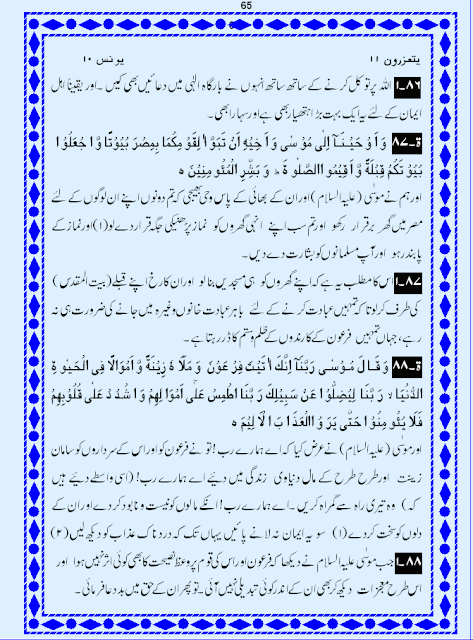 65
یتعذرون ۱۱ یونس ۱۰
۸۶۔۱ اللہ پر توکل کرنے کے ساتھ ساتھ انہوں نے بارگاہ الٰہی میں دعائیں بھی کیں۔ اور یقیناً اہل
ایمان کے لئے یہ ایک بہت بڑا ہتھیار بھی ہے اور سہارا بھی۔
ۃ۔۸۷ وَاَوْحَیْنَآ اِلٰی مُوْسٰی وَاَخِیْہِ اَنْ تَبَوَّاٰ لِقَوْمِکُمَا بِمِصْرَ بُیُوْتًا وَّاجْعَلُوْا
بُیُوْتَکُمْ قِبْلَۃً وَّاَقِیْمُوا الصَّلٰوۃَ ط وَبَشِّرِ الْمُئْومِنِیْنَ ہ
اور ہم نے موسٰی (علیہ السلام) اور ان کے بھائی کے پاس وحی بھیجی کہ تم دونوں اپنے ان لوگوں کے لئے
مصر میں گھر برقرار رکھو اور تم سب اپنے انہی گھروں کو نماز پڑھنے کی جگہ قرار دے لو (۱) اور نماز کے
پابند رہو اور آپ مسلمانوں کو بشارت دے دیں۔
۸۷۔۱ اس کا مطلب یہ ہے کہ اپنے گھروں کو ہی مسجدیں بنا لو اور ان کا رخ اپنے قبلے (بیت المقدس)
کی طرف کر لو تاکہ تمہیں عبادت کرنے کے لئے باہر عبادت خانوں وغیرہ میں جانے کی ضرورت ہی نہ
رہے، جہاں تمہیں فرعون کے کارندوں کے ظلم و ستم کا ڈر رہتا ہے۔
ۃ۔۸۸ وَقَالَ مُوْسٰی رَبَّنَآ اِنَّکَ اٰتَیْتَ فِرْعَوْنَ وَمَلَاَہٗ زِیْنَۃً وَّاَمْوَالًا فِی الْحَیٰوۃِ
الدُّنْیَا لا رَبَّنَا لِیُضِلُّوْا عَنْ سَبِیْلِکَ رَبَّنَا اطْمِسْ عَلٰٓی اَمْوَالِھِمْ وَاشْدُدْ عَلٰی قُلُوْبِھِمْ
فَلَا یُئْومِنُوْا حَتّٰی یَرَوُاالْعَذَابَ الْاَلِیْمَ ہ
اور موسٰی (علیہ السلام) نے عرض کیا کہ اے ہمارے رب! تو نے فرعون کو اور اس کے سرداروں کو سامان
زینت اور طرح طرح کے مال دنیاوی زندگی میں دیئے اے ہمارے رب! (اسی واسطے دیئے ہیں
کہ) وہ تیری راہ سے گمراہ کریں۔ اے ہمارے رب! انکے مالوں کو نیست و نابود کر دے اور ان کے
دلوں کو سخت کر دے (۱) سو یہ ایمان نہ لانے پائیں یہاں تک کہ دردناک عذاب کو دیکھ لیں (۲)
۸۸۔۱ جب موسٰی علیہ السلام نے دیکھا کہ فرعون اور اس کی قوم پر وعظ نصیحت کا بھی کوئی اثر نہیں ہوا اور
اس طرح معجزات دیکھ کر بھی ان کے اندر کوئی تبدیلی نہیں آئی۔ تو پھر ان کے حق میں بددعا فرمائی۔